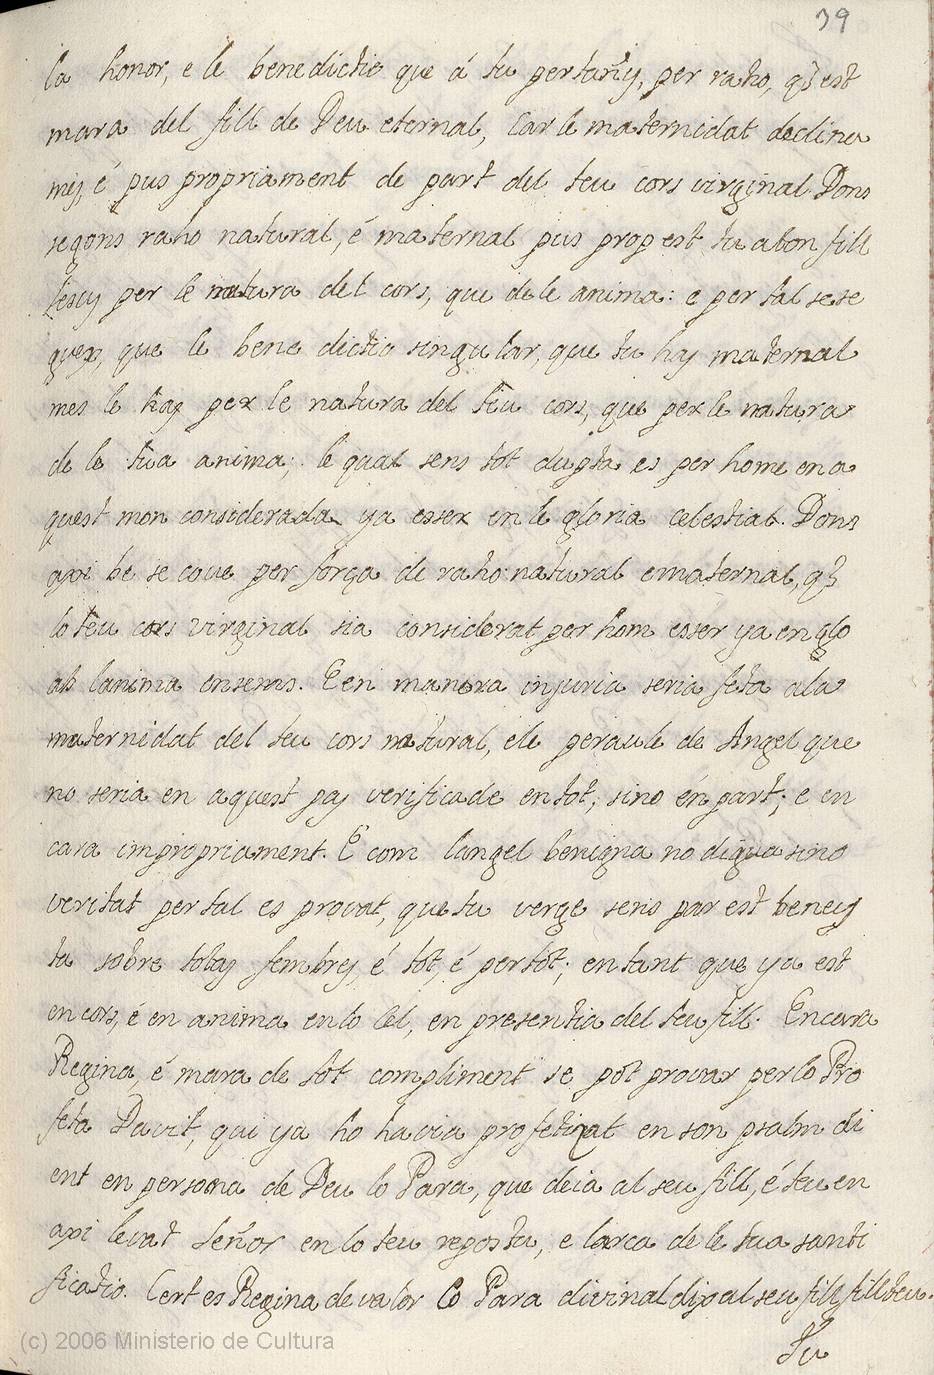 39
la honor, e le benedictio que á tu pertañy, per raho, q̃ est
mara del fill de Deu eternal, Car le maternidat declina
mes, é pus propriament de part del teu cors virginal. Dons
segons raho natural, é maternal pus prop est tu abon fill
Jesus per le natura del cors, que de le anima: e per tal se se
guex, que le bene dictio singular, que tu has maternal
mes le has per le natura del teu cors, que per le natura
de le tua anima; le qual sens tot dupta es per home en a
quest mon considerada ya esser en le gloria celestial. Dons
axi be se cove per força de raho natural e maternal, q̃
lo teu cors virginal sia considerat per hom esser ya en glo
ab lanima ensems. E en manera injuria seria feta a la
maternidat del teu cors natural, e le peraule de Angel que
no seria en aquest pas verificade en tot, sino én part; e en
cara impropriament. E com langel benigna no digua sino
veritat per tal es provat, que tu verge sens par est beney
ta sobre totas fembres, é tot, é per tot; en tant que ya est
en cors, é en anima en lo Cel, en presentia del teu fill. Encara
Regina, é mara de tot compliment se pot provar per lo Pro
feta Davit, qui ya ho havia profetizat en son psalm di
ent en persona de Deu lo Para, que deia al seu fill, é teu en
axi levat Señor en lo teu repostu, e larca de le tua santi
ficatio. Cert es Regina de valor Lo Para divinal dix al seu fill, fill teu.
Tu
(c) 2006 Ministerio de Cultura